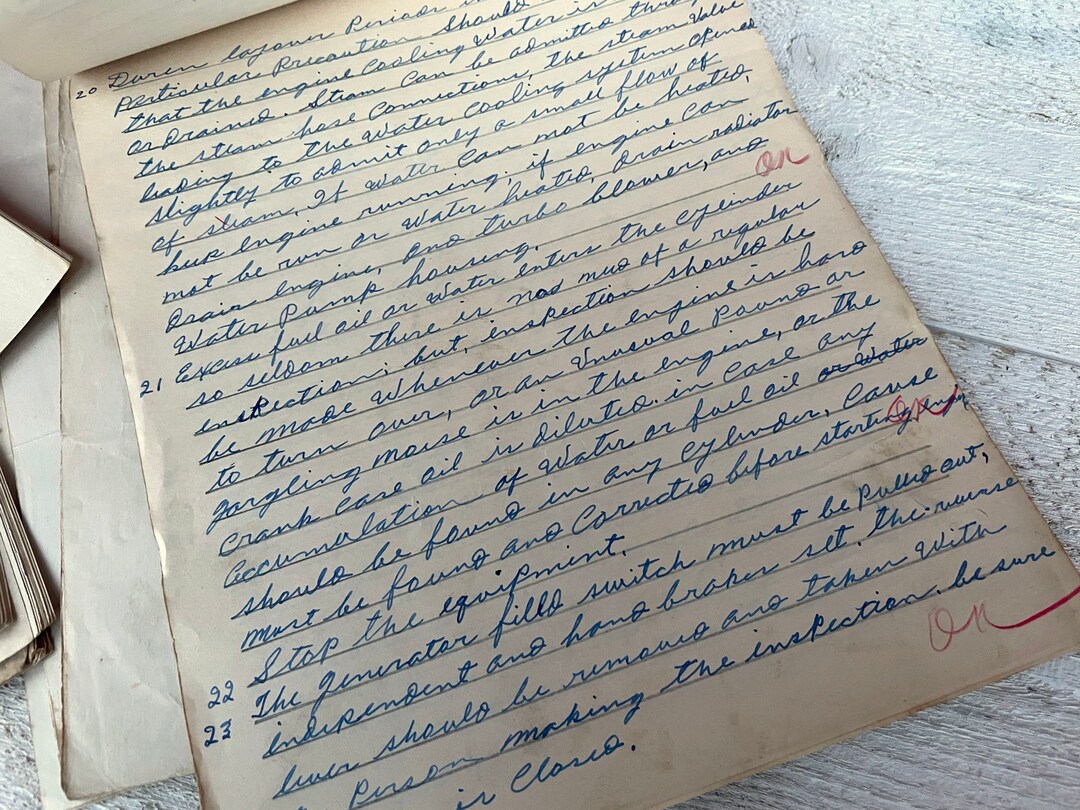 20 Duren layover Periods in
Particular Precaution should
that the engine Cooling Water is
or Drained. Steam Can be admitted through
the steam hose Connections, the steam Valve
leading to the water Cooling system opened
slightly to admit only a small flow of
of steam, If water Can not be heated,
keep engine running. if engine Can
not be run or water heated, Drain radiator
Drain engine, and turbo blower, and
Water Pump housing. OK
21 Excess fuel oil or water enters the Cylinder
so seldom there is not mud of a regular
inspection; but, inspection should be
be made Whenever the engine is hard
to turn over, or an Unusual Pound or
gargling noise is in the engine, or the
Crank Case oil is diluted. in Case any
accumulation of Water or fuel oil or Water
should be found in any Cylinder, Cause
must be found and Corrected before starting engine OK
22 Stop the equipment.
23 The generator filld switch must be Pulled out,
independent and hand brakes set, the reverse
lever should be removed and taken With
Person making the inspection. be sure
is Closed. OK